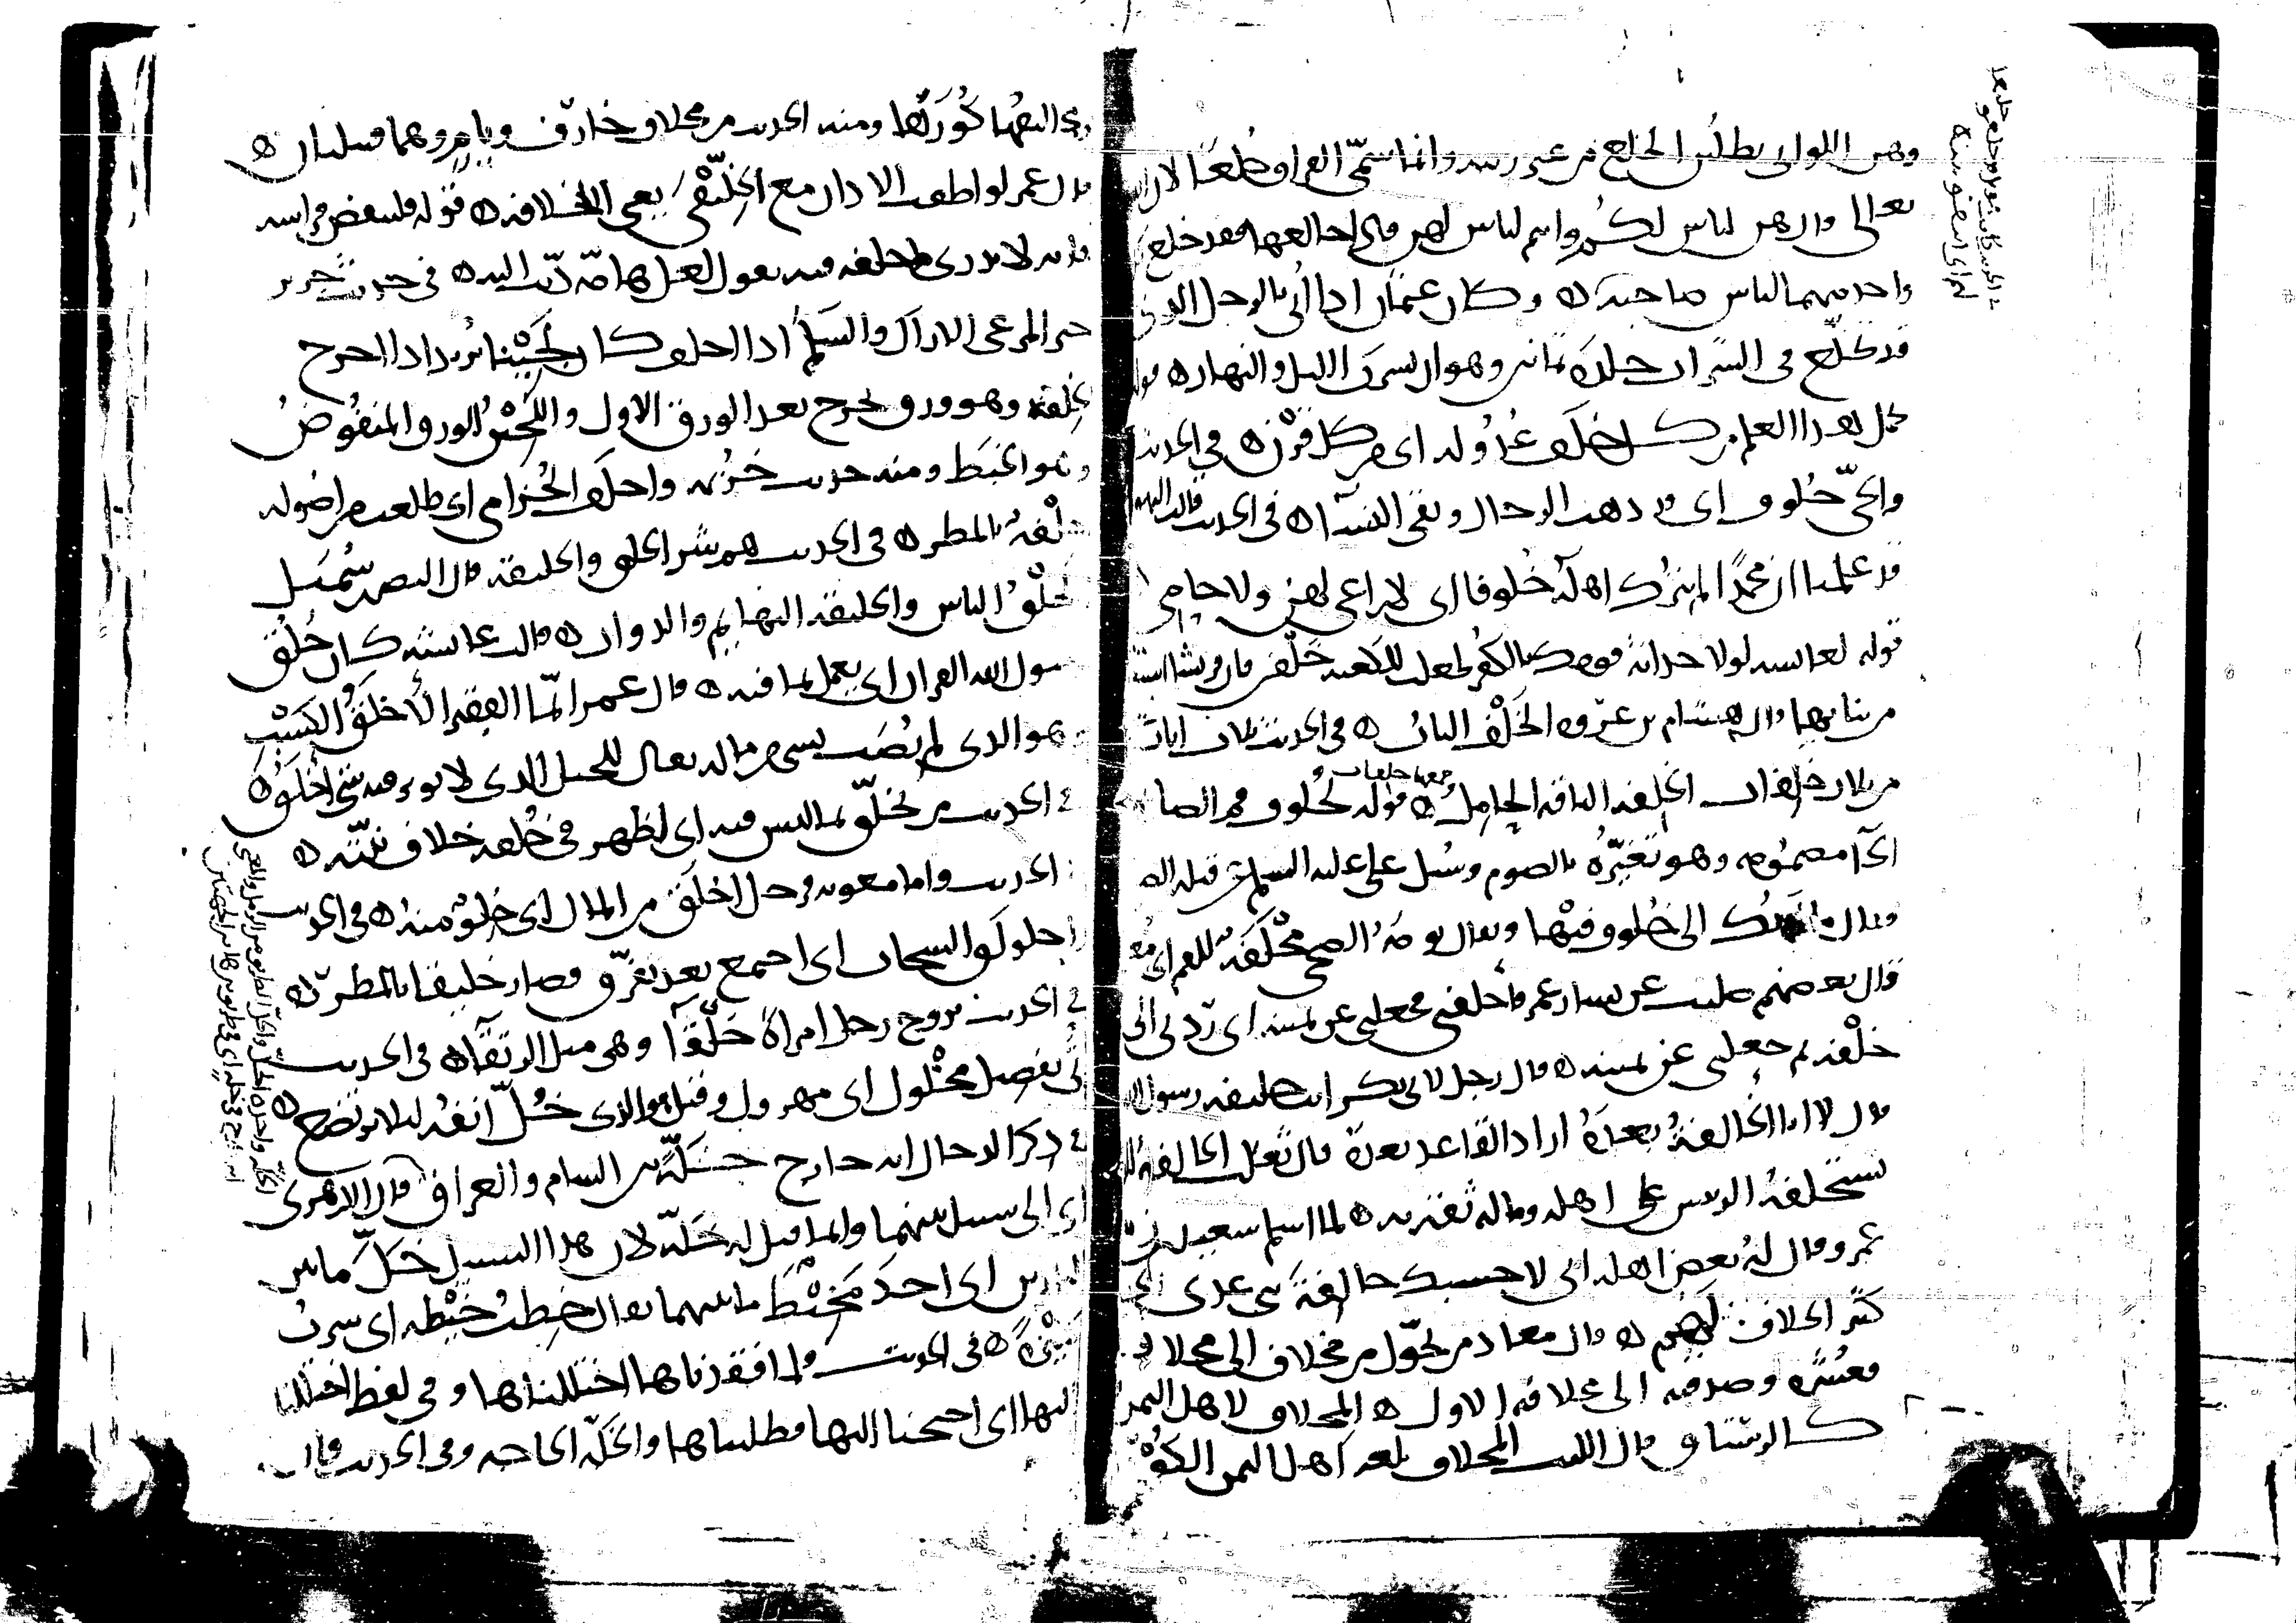 وهن اللواتي يطلبن الخلع من غير ريبة وانما سمي الفراق خلعا لان الله
تعالى قال هن لباس لكم وانتم لباس لهن فاذا خالعها فقد خلع
واحد منهما لباس صاحبه ه وكان عثمان اذا أتي بالرجل الذي
قد تخلع في الشراب جلده ثمانين وهو ان يشرب الليل والنهار ه قوله
يحمل هذا العلم من كل خلف عدوله اي من كل قرن ه في الحديث
والحي خلوف اي قد ذهب الرجال وبقي النساء ه في الحديث قالت اليهود
قد علمنا ان محمدا لم يترك اهله خلوفا اي لا راعي لهن ولا حامي
قوله لعائشة لولا حدثان قومك بالكفر لجعلت للكعبة خلفين فان قريشا استقصرت
من بنائها قال هشام بن عروة الخلف الباب ه في الحديث ثلاث ايات
من ثلاث خلفات الخلفة الناقة الحامل وجمعها خلفات ه قوله لخلوف فم الصائم
الخاء مضمومة وهو تغيره بالصوم وسئل علي عليه السلم عن قبلة الصائم
فقال وما اربك الى خلوف فيها ويقال نومة الضحى مخلفة للفم اي مغيرة
قال بعضهم صليت عن يسار عمر فاخلفني فجعلني عن يمينه اي ردني الى
خلفه ثم جعلني عن يمينه ه قال رجل لابي بكر انت خليفة رسول الله
قال لا انا الخالفة بعده اراد القاعد بعده قال ثعلب الخالفة الذي
يستخلفه الرئيس على اهله وماله ثقة به ه لما اسلم سعيد بن زيد بن
عمرو قال له بعض اهله اني لاحسبك خالفة بني عدي اي
كثير الخلاف لهم ه قال معاذ من تحول من مخلاف الى مخلاف
فعشره وصدقته الى مخلافه الاول ه المخلاف لاهل اليمن
كالرستاق قال الليث المخلاف بلغة اهل اليمن الكورة
في الحديث كانت
وهي البقها كورتها ومنه الحديث من مخلاف خارف ويام وهما قبيلتان ه
قال عمر لو اطقت الاذان مع الخليفى يعني الخلافة ه قوله فلينفض فراشه
فانه لا يدري ما خلفه فيه يقول لعل هامة دبت اليه ه في حديث جرير
خير المرعى الاراك والسلم اذا اخلف كان لجينا يريد اذا اخرج
الخلفة وهو ورق يخرج بعد الورق الاول واللجين الورق المنفوض
وهو الخبط ومنه حديث خزيمة واخلف الخزامى اي طلعت من اصوله
خلفة بالمطر ه في الحديث هم شر الخلق والخليقة قال النضر بن شميل
الخلق الناس والخليقة البهائم والدواب ه قالت عائشة كان خلق
رسول الله القران اي يعمل بما فيه ه قال عمر انما الفقير الأخلق الكسب
وهو الذي لم يصب بشيء من ماله يقال للجبل الذي لا يوثر فيه شيء اخلق ه
في الحديث من تخلق بما ليس فيه اي اظهر في خلقه خلاف نيته ه
في الحديث واما معوية فرجل اخلق من المال اي خلو منه ه في الحديث
واخلولق السحاب اي اجتمع بعد تفرق وصار خليقا بالمطر ه
في الحديث تزوج رجل امراة خلقاء وهي مثل الرتقاء ه في الحديث
أتي بفصيل مخلول اي مهزول وقيل هو الذي خل انفه ليلا يرتضع ه
في ذكر الدجال انه خارج خلة بين الشام والعراق قال الازهري
اي الى سبيل بينهما وانما قيل له خلة لان هذا السبيل خل ما بين
البلدين اي اخذ مخيط ما بينهما يقال خطت خيطة اي سرت
سيرة ه في الحديث ولما فقدناها اختللناها وفي لفظ اختللنا
اليها اي احتجنا اليها فطلبناها والخلة الحاجة وفي الحديث قال